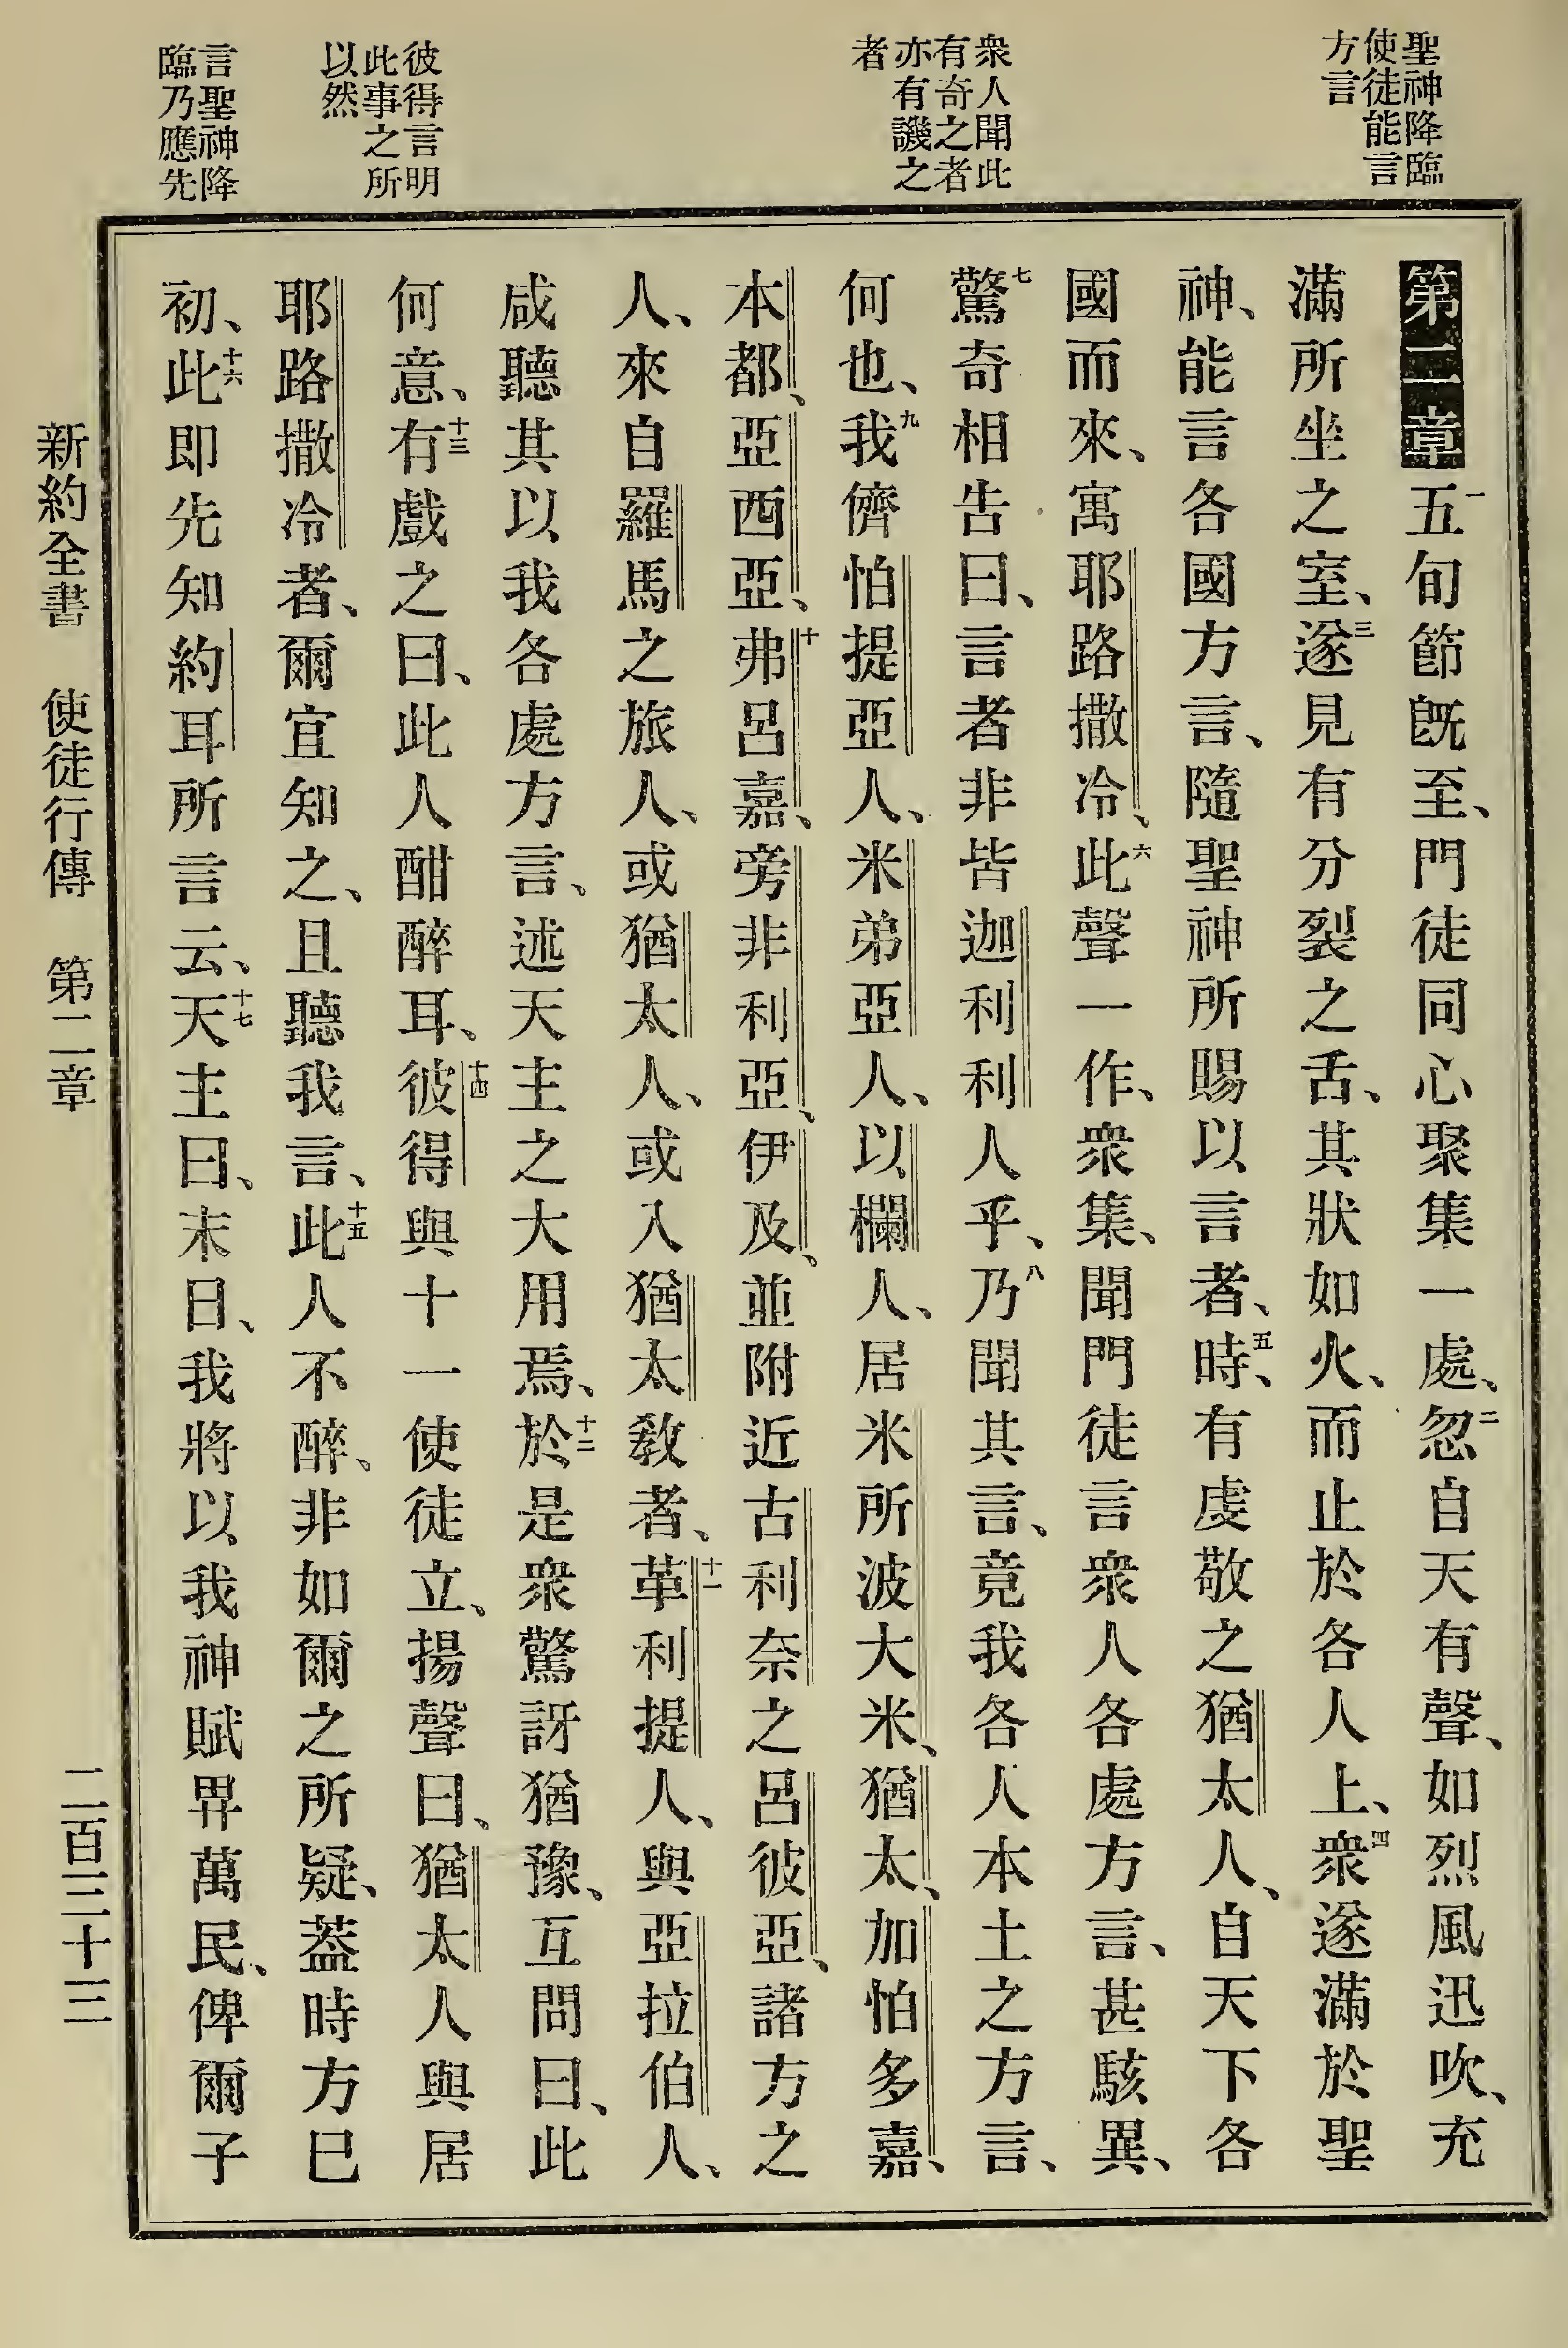 聖神降臨
使徒能言
方言
衆人聞此
有奇之者
亦有譏之
者
彼得言明
此事之所
以然
言聖神降
臨乃應先
第二章 一五旬節旣至、門徒同心聚集一處、二忽自天有聲、如烈風迅吹、充
滿所坐之室、三遂見有分裂之舌、其狀如火、而止於各人上、四衆遂滿於聖
神、能言各國方言、隨聖神所賜以言者、五時、有虔敬之猶太人、自天下各
國而來、寓耶路撒冷、六此聲一作、衆集、聞門徒言衆人各處方言、甚駭異、
七驚奇相告曰、言者非皆迦利利人乎、八乃聞其言、竟我各人本土之方言、
何也、九我儕怕提亞人、米弟亞人、以欄人、居米所波大米、猶太、加怕多嘉、
本都、亞西亞、十弗呂嘉、旁非利亞、伊及、並附近古利奈之呂彼亞、諸方之
人、來自羅馬之旅人、或猶太人、或入猶太敎者、十一革利提人、與亞拉伯人、
咸聽其以我各處方言、述天主之大用焉、十二於是衆驚訝猶豫、互問曰、此
何意、十三有戲之曰、此人酣醉耳、十四彼得與十一使徒立、揚聲曰、猶太人與居
耶路撒冷者、爾宜知之、且聽我言、十五此人不醉、非如爾之所疑、蓋時方巳
初、十六此即先知約耳所言云、十七天主曰、末日、我將以我神賦畀萬民、俾爾子
新約全書 使徒行傳 第二章 二百三十三